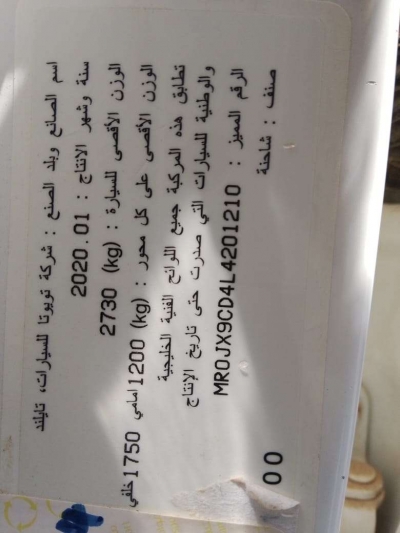 اسم الصانع وبلد الصنع : شركة تويوتا للسيارات، تايلند
سنة وشهر الانتاج : 2020.01
الوزن الأقصى للسيارة : (kg) 2730
الوزن الأقصى على كل محور : (kg) 1200 امامي 1750 خلفي
تطابق هذه المركبة جميع اللوائح الفنية الخليجية
والوطنية للسيارات التي صدرت حتى تاريخ الإنتاج
الرقم المميز : MR0JX9CD4L4201210
صنف : شاحنة
00